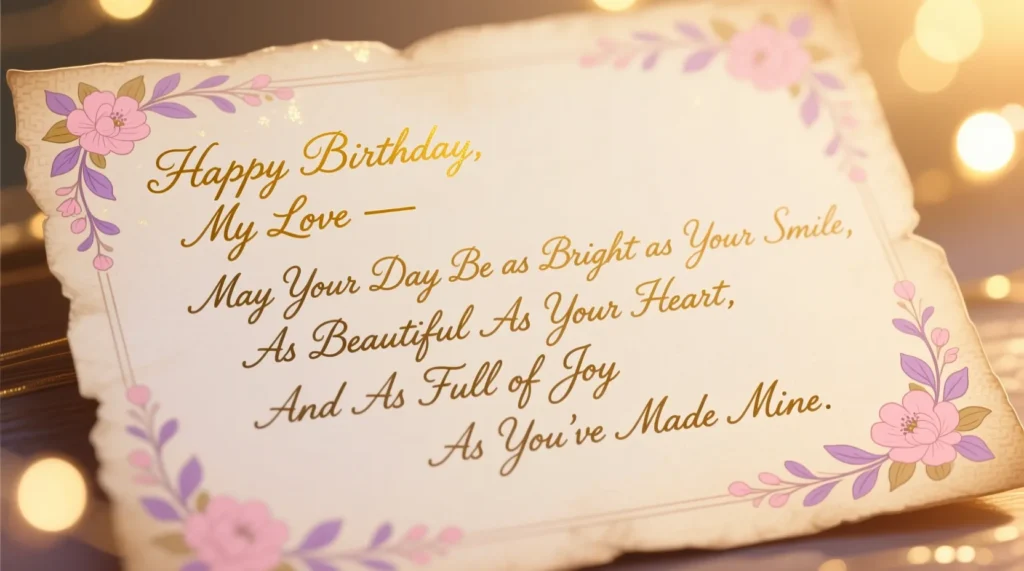 Happy Birthday,
My Love —
May Your Day Be as Bright as Your Smile,
As Beautiful As Your Heart,
And As Full of Joy
As You've Made Mine.